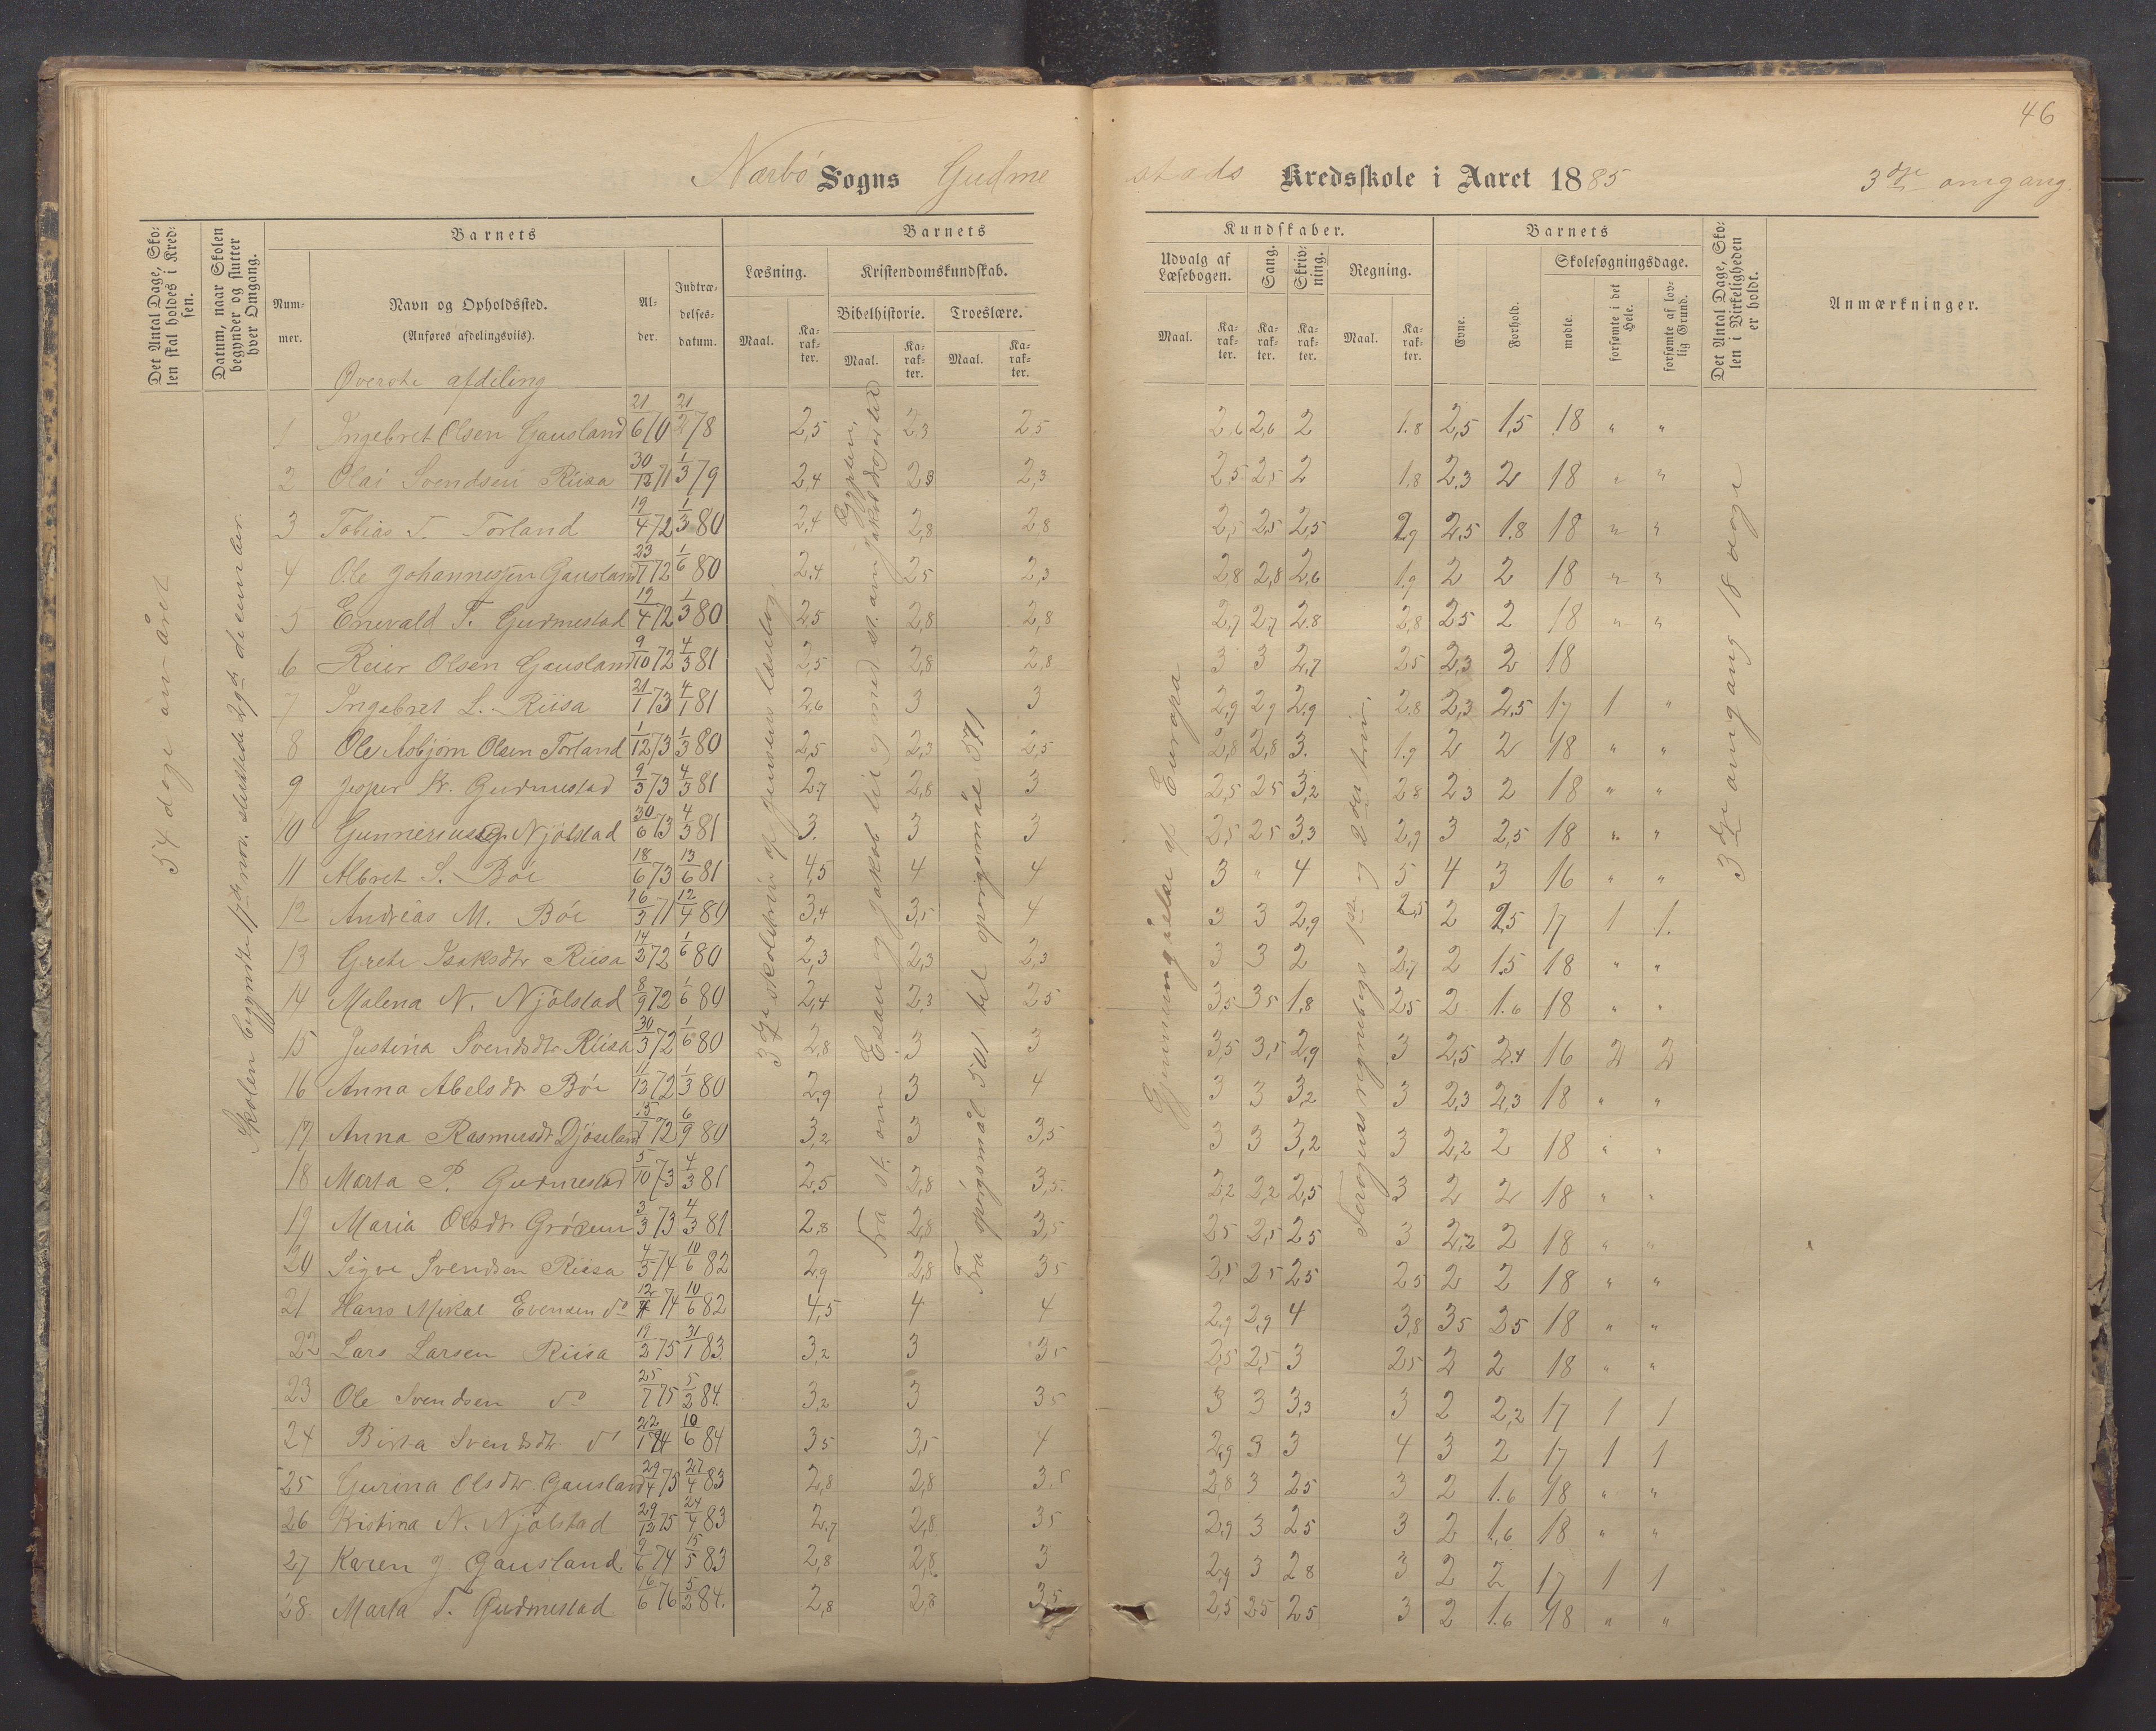 46
Nærbö Sogns Gudmestads Kredsskole i Aaret 1885 3dje omgang.
Det Antal Dage, Skolen skal holdes i Kredsen.
Datum, naar Skolen begynder og slutter hver Omgang.
Barnets
Nummer.
Navn og Opholdssted.
(Anføres afdelingsviis).
Alder.
Indtrædelsesdatum.
Barnets Kundskaber.
Læsning.
Maal. Karakter.
Kristendomskundskab.
Bibelhistorie.
Maal. Karakter.
Troeslære.
Maal. Karakter.
Udvalg af Læsebogen.
Maal. Karakter.
Sang. Karakter.
Skrivning. Karakter.
Regning.
Maal. Karakter.
Barnets
Evne.
Forhold.
Skolesøgningsdage.
mødte.
forsømte i det Hele.
forsømte af lovlig Grund.
Det Antal Dage, Skolen i Virkeligheden er holdt.
Anmærkninger.
54 dage om året
3dje omgang 18 dage
Fra spörgsmål 501 til spörgsmål 571
Överste afdeling
1 Ingebret Olsen Gausland 21/6 70 21/2 78 2,5 2,3 2,5 2,6 2,6 2 1.8 2,5 1,5 18 " "
2 Olai Svendsen Riisa 30/12 71 1/3 79 2,4 2,3 2,3 2,5 2,5 2 1,8 2,3 2 18 " "
3 Tobias T. Torland 19/4 72 1/3 80 2,4 2,8 2,8 2,5 2,5 2,5 2,5 1.8 18 " "
4 Ole Johannessen Gausland 23/7 72 1/6 80 2,4 2,5 2,3 2,8 2,8 2,6 1,9 2 2 18 " "
5 Enevald T. Gudmestad 19/4 72 1/3 80 2,5 2,8 2,8 2,7 2,7 2,8 2,8 2,5 2 18 " "
6 Reier Olsen Gausland 9/10 72 4/3 81 2,5 2,8 2,8 3 3 2,7 2,5 2,3 2 18
7 Ingebret L. Riisa 21/1 73 4/1 81 2,6 3 3 2,9 2,9 2,9 2,8 2,3 2,5 17 1 "
8 Ole Asbjörn Olsen Torland 1/12 73 1/3 80 2,5 2,3 2,5 2,8 2,8 3. 1,9 2 2 18 " "
9 Jesper Kr. Gudmestad 9/3 73 4/3 81 2,7 2,8 3 2,5 2,5 3,2 2,8 2,3 2 18 " "
10 Njölstad 30/6 73 4/3 81 3. 3 3 2,5 2,5 3,3 2,9 3 2,5 18 " "
11 Albret S. Böe 18/6 73 13/6 81 4,5 4 4 3 " 4 5 4 3 16 " "
12 Andreas M. Böe 16/3 71 12/4 80 3,4 3,5 4 3 3 2,9 2,5 2 17 1 1.
13 Grete Isaksdtr Riisa 14/2 72 1/6 80 2,3 2,3 2,3 3 3 2 2,7 2 1.5 18 " "
14 Malena N. Njölstad 8/9 72 1/6 80 2,4 2,3 2,5 3,5 3,5 1,8 2,5 2 1.6 18 " "
15 Justina Svendsdtr Riisa 30/3 72 1/6 80 2,8 3 3 3,5 3,5 2,9 3 2,5 2,4 16 2 2
16 Anna Abelsdr Böe 11/12 72 1/3 80 2,9 3 4 3 3 3,2 3 2,3 2,3 18 " "
17 Anna Rasmusdr Djöseland 15/7 72 6/9 80 3,2 3 3,5 3 3 3,2 3 2,2 2 18 " "
18 Marta P. Gudmestad 5/10 73 4/3 81 2,5 2,8 3,5 2,2 2,2 2,5 3 2 2 18 " "
19 Maria Olsdr Grödem 3/3 73 4/3 81 2,8 2,8 3,5 2,5 2,5 2,5 3 2,2 2 18 " "
20 Sigve Svendsen Riisa 4/5 74 10/6 82 2,9 2,8 3,5 2,5 2,5 2,5 2,5 2 2 18 " "
21 Hans Mikal Evensen do 74 10/6 82 4,5 4 4 2,9 2,9 4 3,8 3,5 2,5 18 " "
22 Lars Larsen Riisa 19/2 75 31/1 83. 3,2 3 3,5 2,5 2,5 3 2,5 2 2 18 " "
23 Ole Svendsen do 25/7 75 5/2 84. 3,2 3 3,5 3 3 3,3 3 2 2,2 17 1 1
24 Berta Svendsdtr do 10/6 84 3,5 3,5 4 2,9 3 3 4 3 2 17 1 1
25 Gurina Olsdtr Gausland 29/4 75 27/4 83 2,8 2,8 3,5 2,8 3 2,5 3 2 1.6 18 " "
26 Kistina N. Njölstad 29/12 75 24/4 83 2,7 2,8 3,5 2,9 3 2,5 3 2 1,6 18 " "
27 Karen J. Gausland. 9/6 74 15/5 83 2,8 2,8 3 2,9 3 2,8 3 2 2 17 1 1
28 Marta T. Gudmestad 16/6 76 5/2 84. 2,8 2,8 3,5 2,5 2,5 2,5 3 2 1.6 18 " "